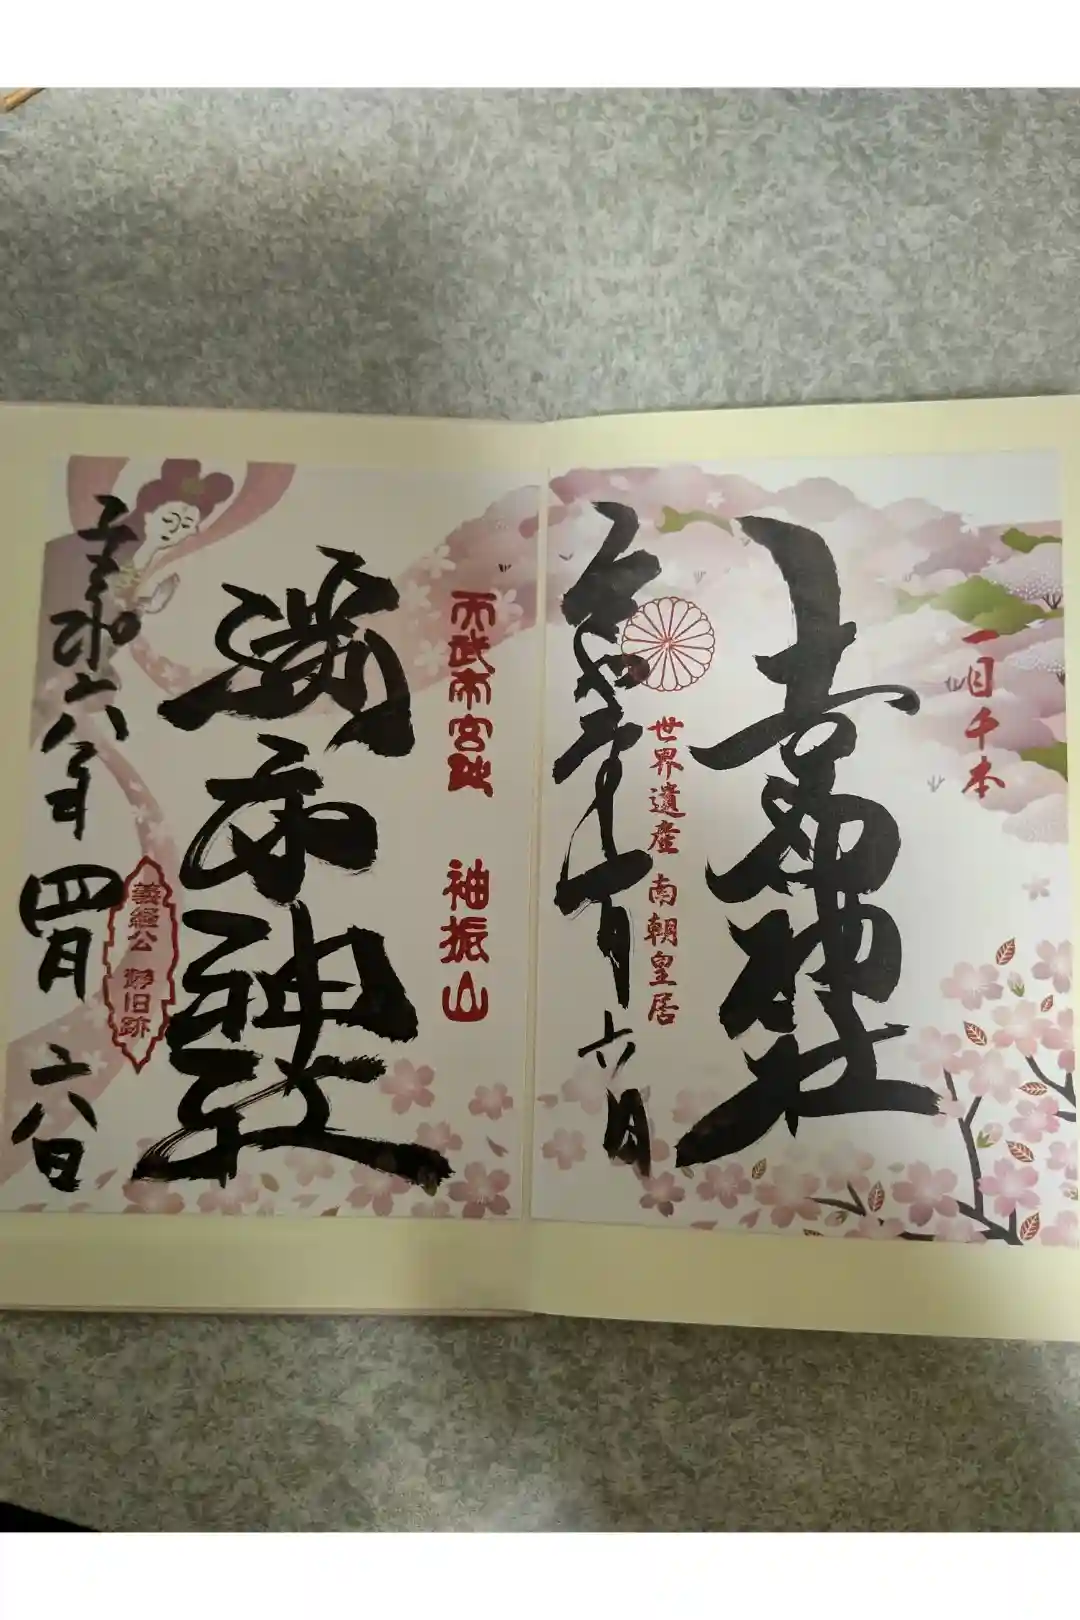 一目千本
吉水神社
世界遺産 南朝皇居
六日
天武帝宮跡 袖振山
勝手神社
義経公 舞旧跡
令和六年 四月 六日